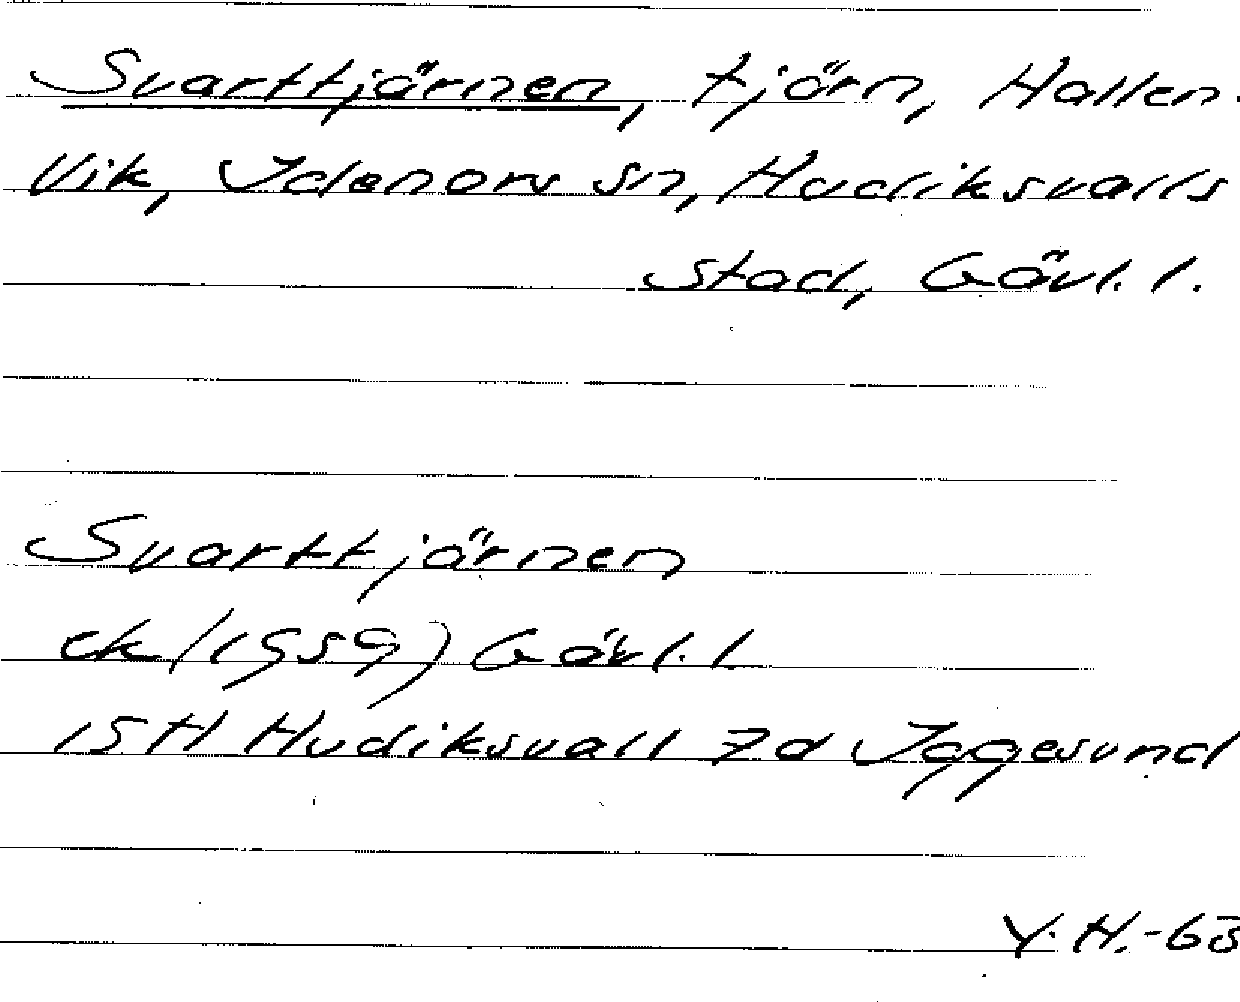 Svarttjärnen, tjärn, Hallen-
vik, Idenors sn, Hudiksvalls
stad, Gävl. l.
Svarttjärnen
ek (1959) Gävl. l.
15H Hudiksvall 7d Iggesund
Y. H. -63